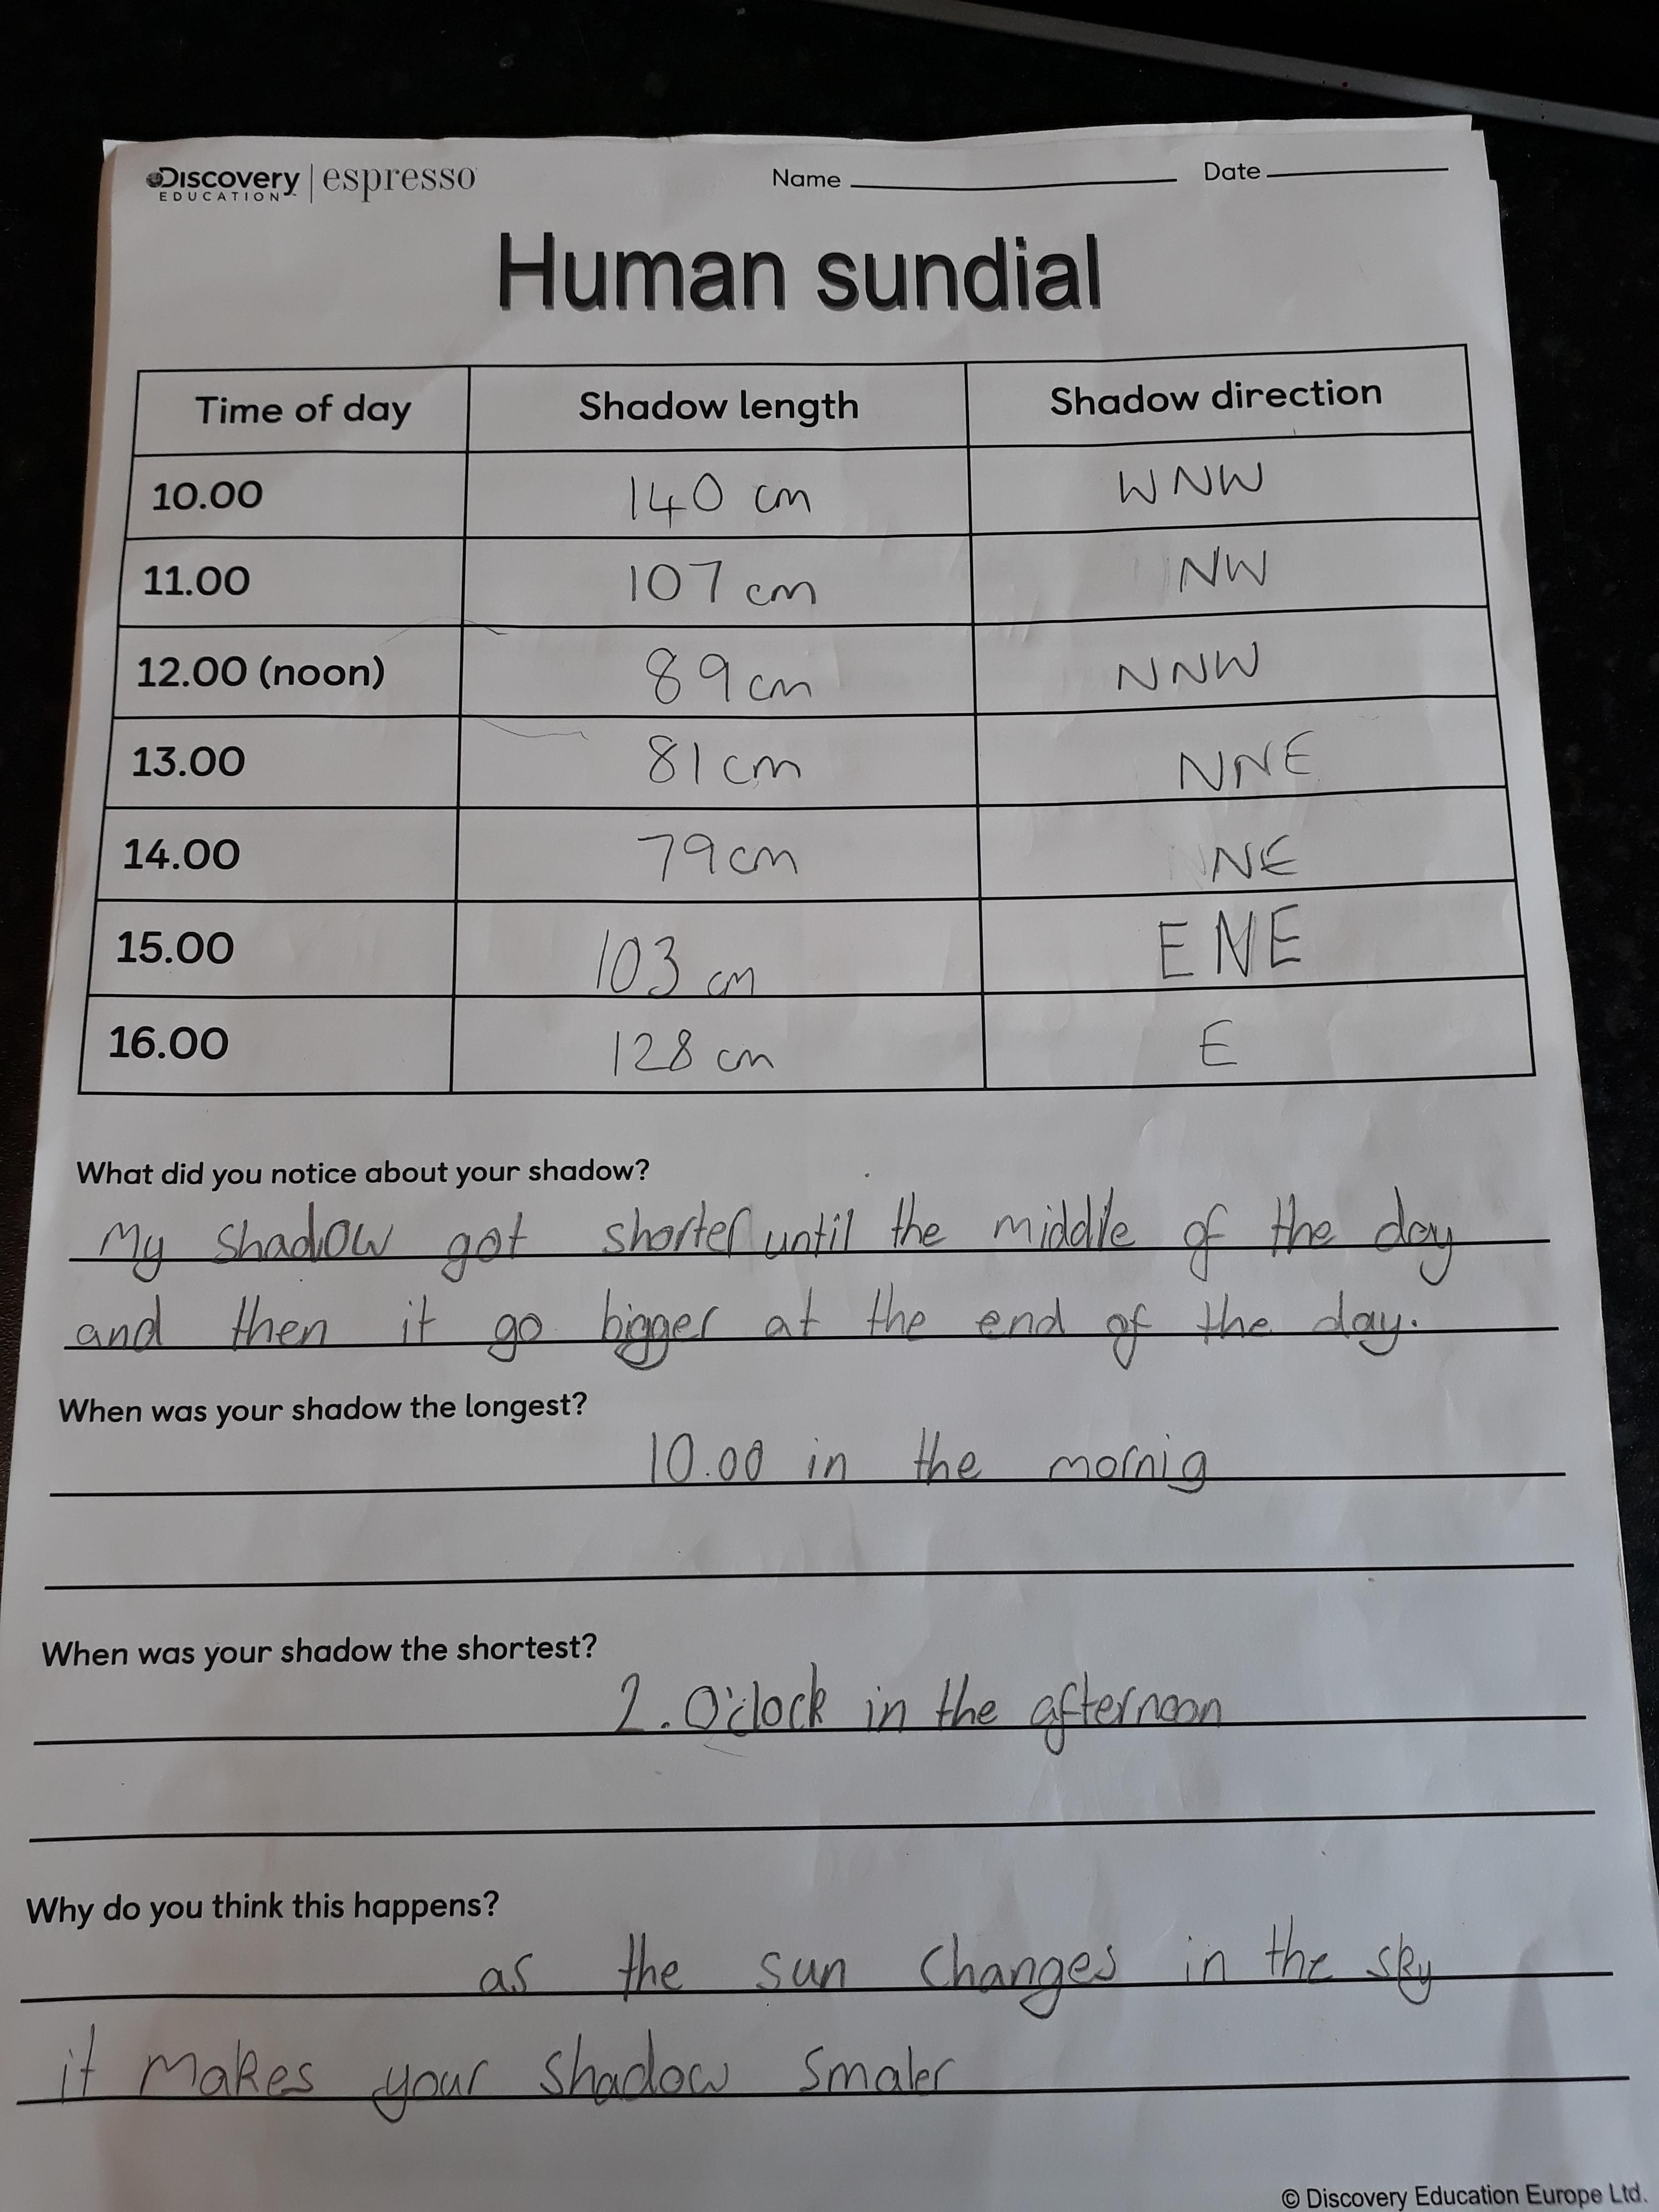 Discovery EDUCATION | espresso Name Date
Human sundial
Time of day Shadow length Shadow direction
10.00 140 cm WNW
11.00 107 cm NW
12.00 (noon) 89 cm NNW
13.00 81 cm NNE
14.00 79 cm NE
15.00 103 cm ENE
16.00 128 cm E
What did you notice about your shadow?
My shadow got shorter until the middle of the day
and then it go bigger at the end of the day.
When was your shadow the longest?
10.00 in the mornig
When was your shadow the shortest?
2.O'clock in the afternoon
Why do you think this happens?
as the sun changes in the sky
it makes your shadow smaler
© Discovery Education Europe Ltd.